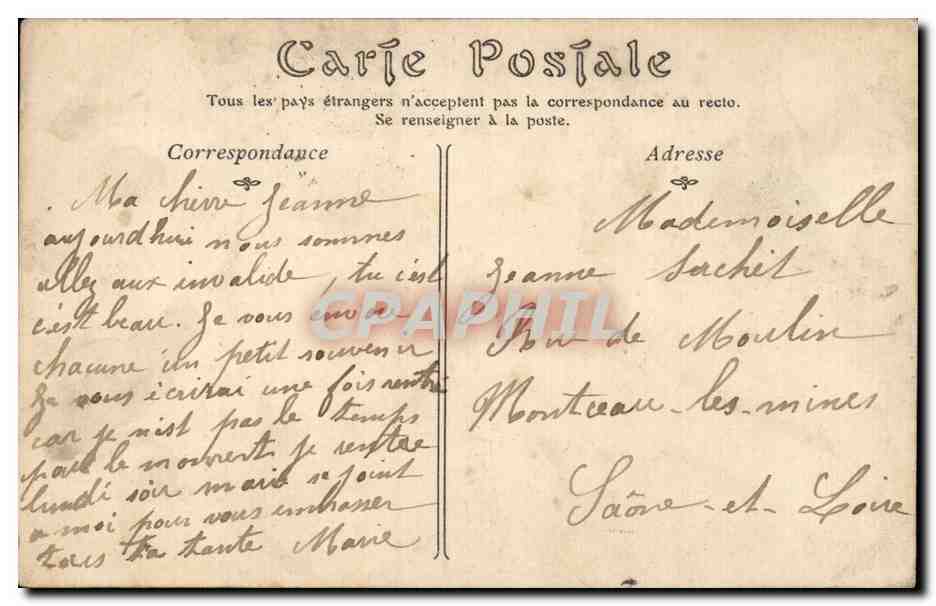 Carte Postale
Tous les pays étrangers n'acceptent pas la correspondance au recto.
Se renseigner à la poste.
Correspondance
Ma chère Jeanne
aujourd'hui nous sommes
allez aux invalide, tu c'est
c'est beau. Je vous envoie
chacune un petit souvenir
Je vous écrirai une fois rentré
car je n'ist pas le temps
pour le moment je rentre
lundi soir marie se joint
a moi pour vous embrasser
tous ta tante Marie
Adresse
Mademoiselle
Jeanne Sachet
Rue de Moulin
Montceau-les-mines
Saône-et-Loire
CPAPHIL